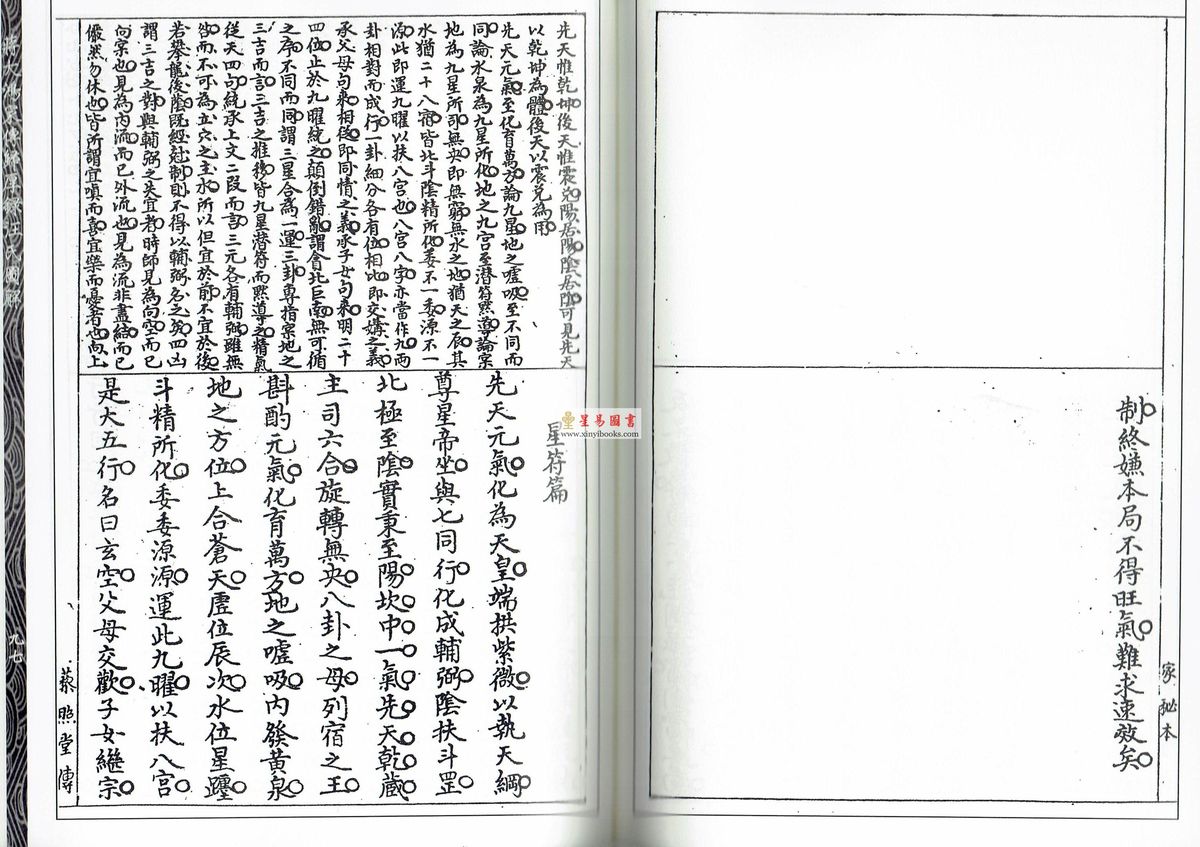 制終嫌本局不得旺氣難求速效矣
家秘本
先天惟乾坤後天惟震兌陽居陽陰居陰可見先天
以乾坤為體後天以震兌為用
先天元氣至化育萬方論九星地之噓吸至不同而
同論水泉為九星所化地之九宮至潛符默導論案
地為九星所司無央即無窮無水之地猶天之辰其
水猶二十八宿皆北斗陰精所化委不一委源不一
源此即運九曜以扶八宮也八宮八字亦當作九兩
卦相對而成行一卦細分各有位相比即交媾之義
承父母句來相啟即同情之義承子女句來明二十
四位止於九曜統之顛倒錯亂謂會北巨南無可循
之序不同而同謂三星合為一運三卦專指案地之
三吉而言三吉之推移皆九星潛符而默導之精氣
從天四句統承上文二段而言三元各有輔弼雖無
咎而不可為立穴之主水所以但宜於前不宜於後
若攀龍後蔭既經尅制則不得以輔弼名之矣四凶
謂三吉之對與輔弼之失宜者時師見為向空而已
向案也見為內流而已外流也見為流非盡結而已
儼然勿休也皆所謂宜嗔而喜宜樂而憂者也向上
星符篇
先天元氣化為天皇端拱紫微以執天綱
尊星帝坐與七同行化成輔弼陰扶斗罡
北極至陰實秉至陽坎中一氣先天乾藏
主司六合旋轉無央八卦之母列宿之王
斟酌元氣化育萬方地之噓吸內發黃泉
地之方位上合蒼天虛位辰次水位星躔
斗精所化委委源源運此九曜以扶八宮
是大五行名曰玄空父母交歡子女繼宗
蔡照堂傳
九七
星易圖書
www.xinyibooks.com